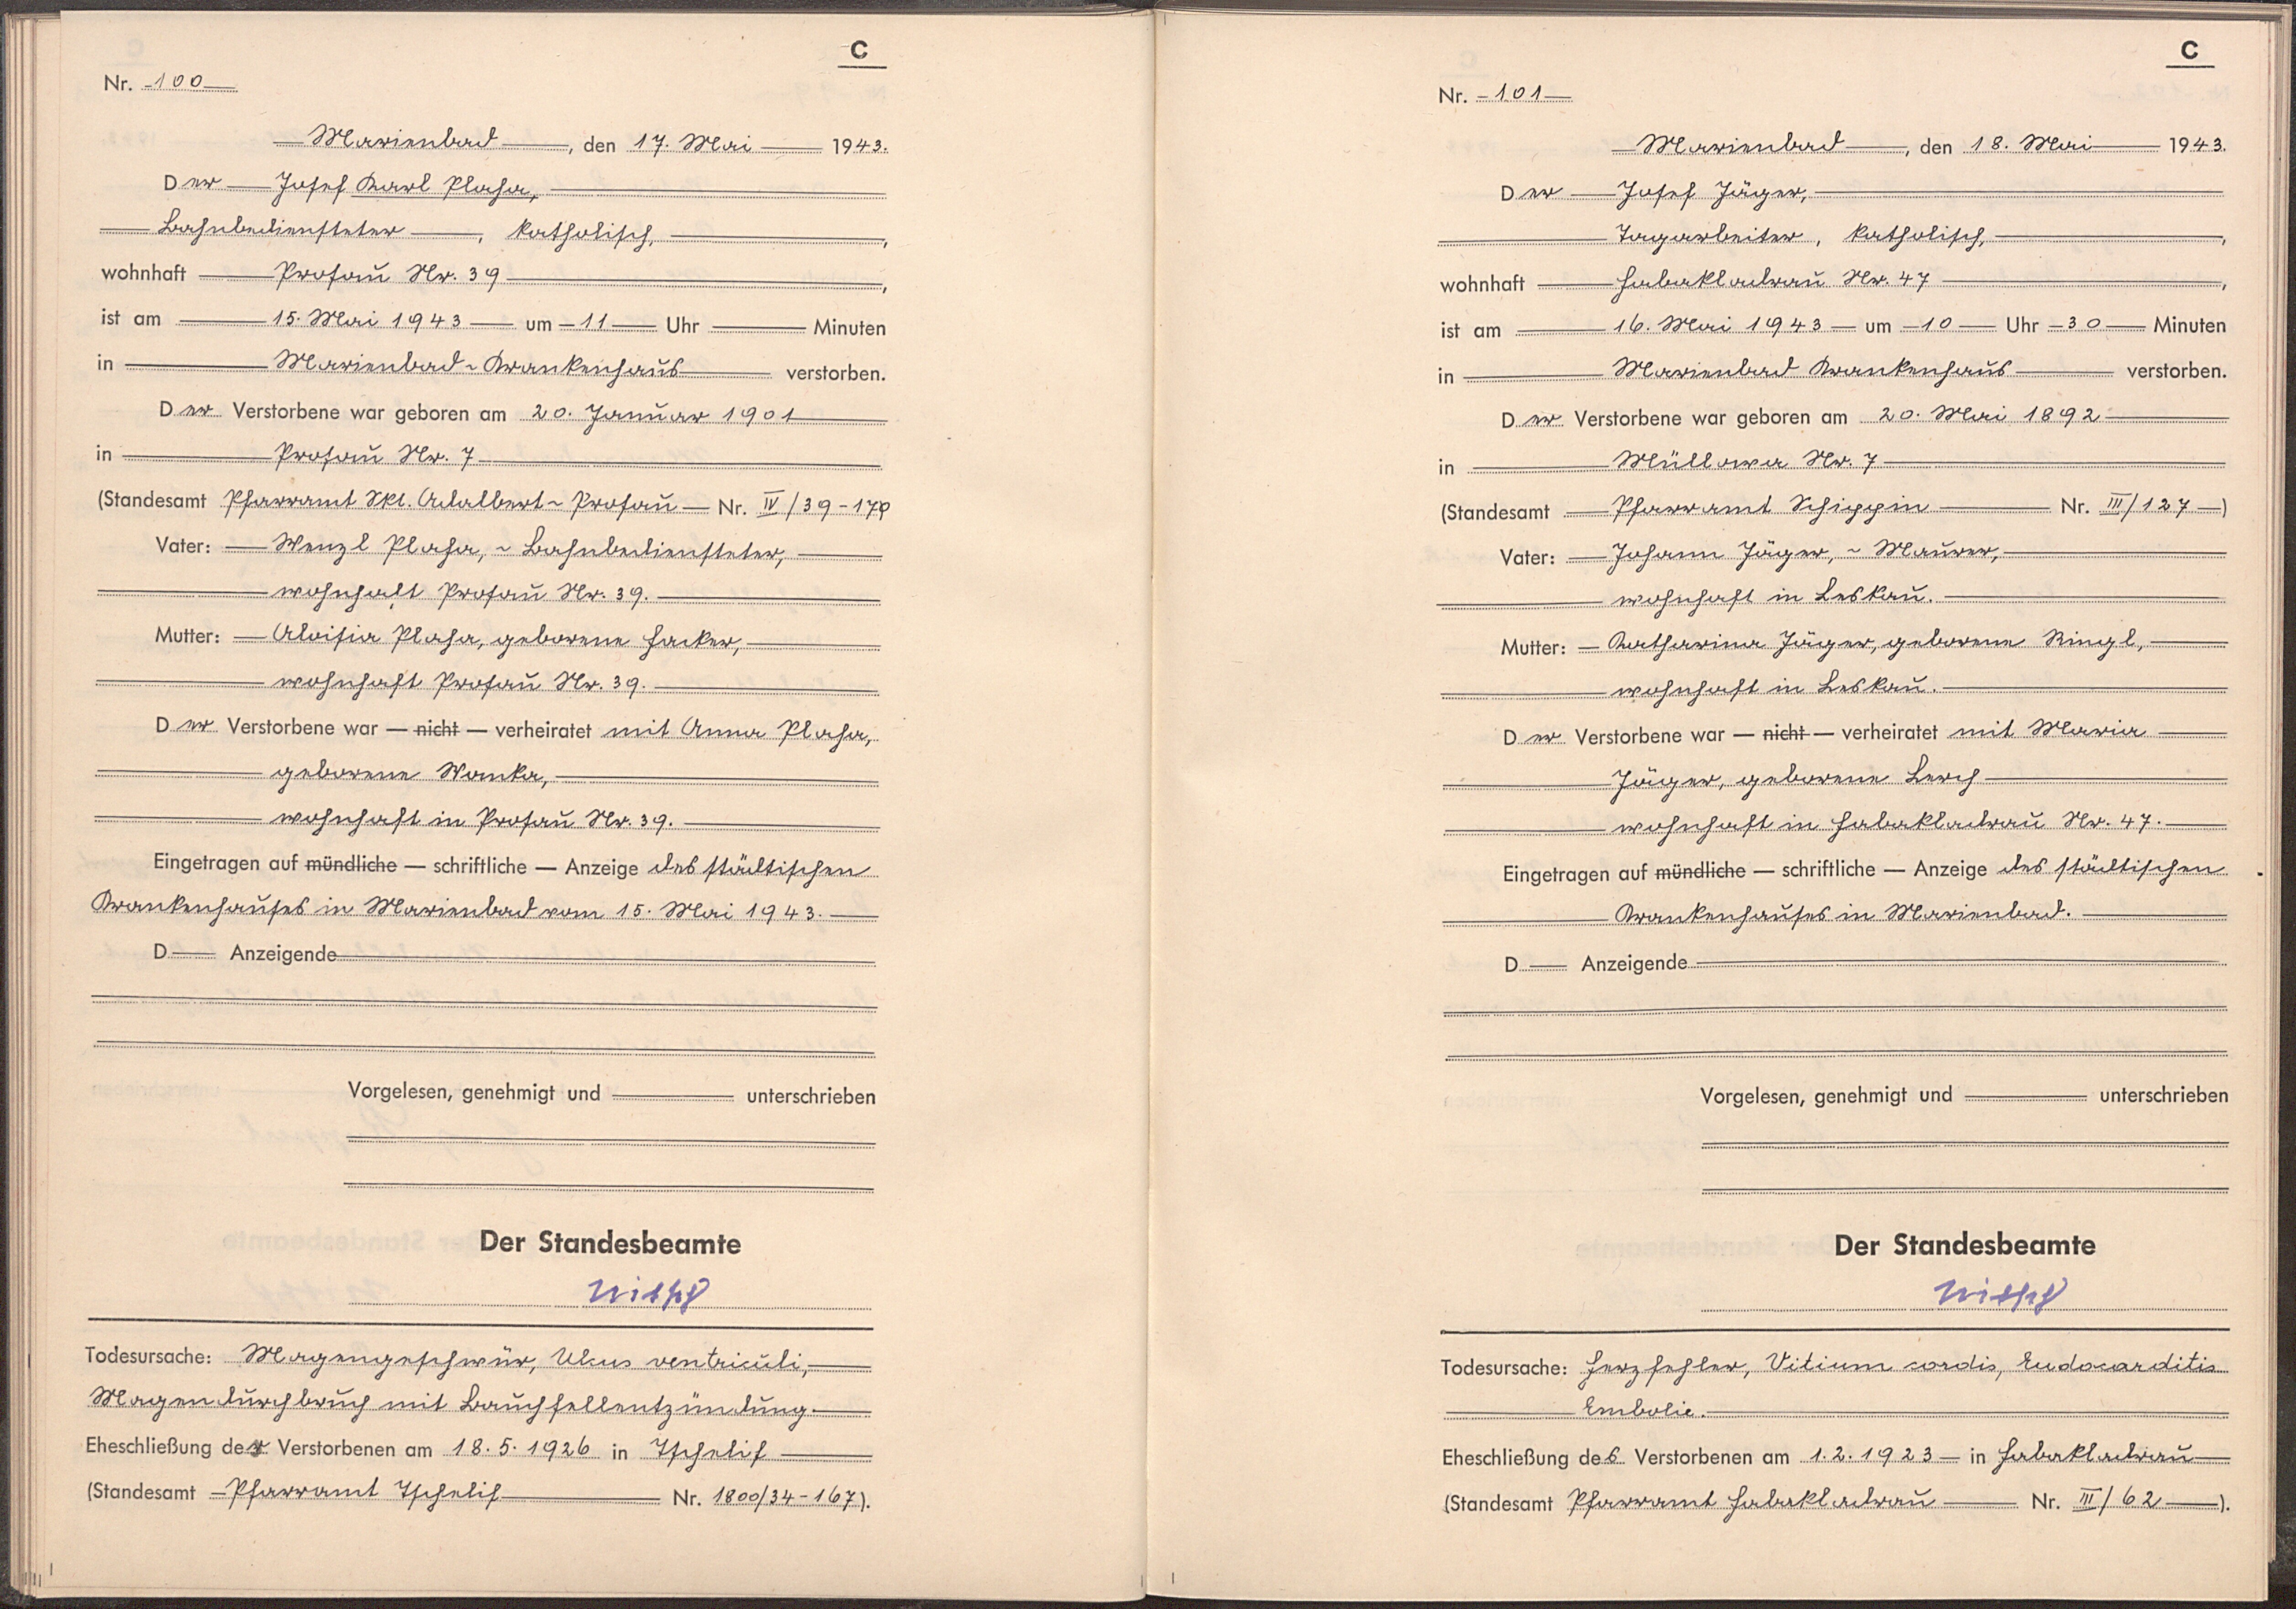 C
Nr. 100
Marienbad, den 17. Mai 1943.
Der Josef Karl Plaha,
Bahnbediensteter, katholisch,
wohnhaft Prosau Nr. 39,
ist am 15. Mai 1943 um 11 Uhr Minuten
in Marienbad - Krankenhaus verstorben.
Der Verstorbene war geboren am 20. Januar 1901
in Prosau Nr. 7
(Standesamt Pfarramt Skt. Adalbert - Prosau Nr. IV/39-170
Vater: Wenzl Plaha, - Bahnbediensteter,
wohnhaft Prosau Nr. 39.
Mutter: Aloisia Plaha, geborene Hacker,
wohnhaft Prosau Nr. 39.
Der Verstorbene war — nicht — verheiratet mit Anna Plaha,
geborene Wanka,
wohnhaft in Prosau Nr. 39.
Eingetragen auf mündliche — schriftliche — Anzeige des städtischen
Krankenhauses in Marienbad vom 15. Mai 1943.
D Anzeigende
Vorgelesen, genehmigt und unterschrieben
Der Standesbeamte
Todesursache: Magengeschwür, Ulcus ventriculi,
Magendurchbruch mit Bauchfellentzündung.
Eheschließung der Verstorbenen am 18.5.1926 in Tschelif
(Standesamt Pfarramt Tschelif Nr. 1800/34-167).
C
Nr. 101
Marienbad, den 18. Mai 1943.
Der Josef Jäger,
Tagarbeiter, katholisch,
wohnhaft Habakladrau Nr. 47,
ist am 16. Mai 1943 um 10 Uhr 30 Minuten
in Marienbad Krankenhaus verstorben.
Der Verstorbene war geboren am 20. Mai 1892
in Müllowa Nr. 7
(Standesamt Pfarramt Schippin Nr. III/127)
Vater: Johann Jäger, - Maurer,
wohnhaft in Leskau.
Mutter: Katharina Jäger, geborene Ringl,
wohnhaft in Leskau.
Der Verstorbene war — nicht — verheiratet mit Maria
Jäger, geborene Lerch
wohnhaft in Habakladrau Nr. 47.
Eingetragen auf mündliche — schriftliche — Anzeige des städtischen
Krankenhauses in Marienbad.
D Anzeigende
Vorgelesen, genehmigt und unterschrieben
Der Standesbeamte
Todesursache: Herzfehler, Vitium cordis, Endocarditis
Embolie.
Eheschließung des Verstorbenen am 1.2.1923 in Habakladrau
(Standesamt Pfarramt Habakladrau Nr. III/62).